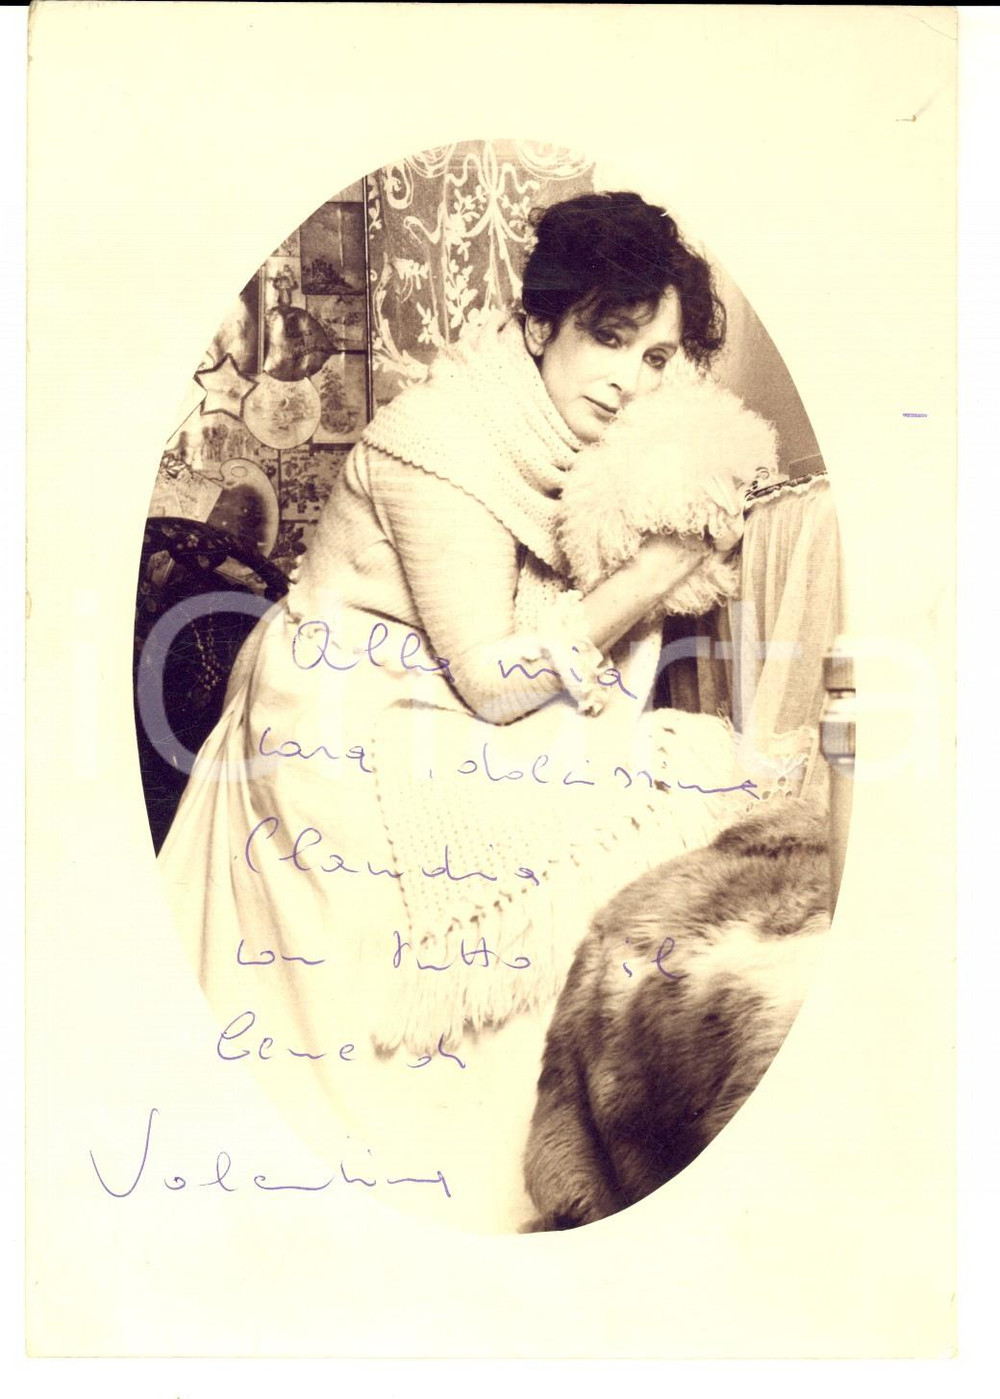 Alla mia
cara, dolcissima
Claudia
con tutto il
bene di
Valentina
iCharta